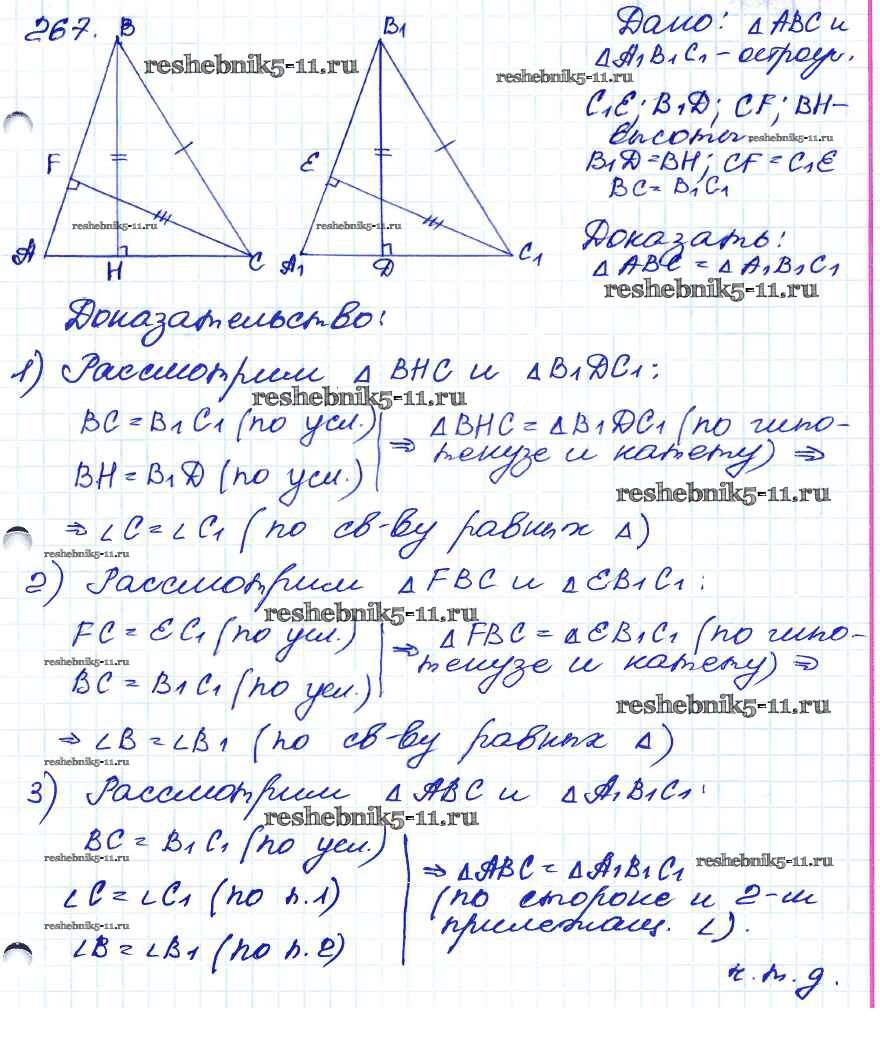 267.
B
B1
F
E
A
H
C
A1
D
C1
reshebnik5-11.ru
reshebnik5-11.ru
reshebnik5-11.ru
reshebnik5-11.ru
Дано: △ABC и
△A1B1C1 - остроуг.
C1E; B1D; CF; BH-
высоты
reshebnik5-11.ru
B1D=BH; CF=C1E
BC=B1C1
Доказать:
△ABC = △A1B1C1
reshebnik5-11.ru
Доказательство:
1) Рассмотрим △BHC и △B1DC1:
reshebnik5-11.ru
BC=B1C1 (по усл.)
BH=B1D (по усл.)
⇒ △BHC=△B1DC1 (по гипо-
тенузе и катету) ⇒
reshebnik5-11.ru
⇒ ∠C=∠C1 (по св-ву равных △)
reshebnik5-11.ru
2) Рассмотрим △FBC и △EB1C1:
reshebnik5-11.ru
FC=EC1 (по усл.)
reshebnik5-11.ru
BC=B1C1 (по усл.)
⇒ △FBC=△EB1C1 (по гипо-
тенузе и катету) ⇒
reshebnik5-11.ru
⇒ ∠B=∠B1 (по св-ву равных △)
reshebnik5-11.ru
3) Рассмотрим △ABC и △A1B1C1:
reshebnik5-11.ru
BC=B1C1 (по усл.)
reshebnik5-11.ru
∠C=∠C1 (по п.1)
reshebnik5-11.ru
∠B=∠B1 (по п.2)
⇒ △ABC=△A1B1C1
reshebnik5-11.ru
(по стороне и 2-м
прилежащ. ∠).
ч.т.д.